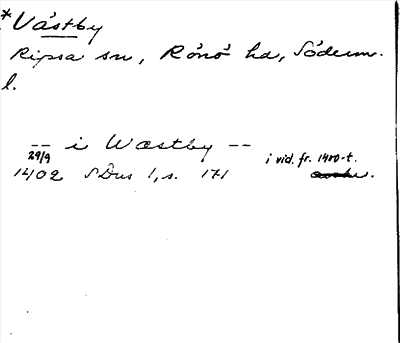 *Västby
Ripsa sn, Rönö hd, Söderm.
l.
-- i Wæstby --
29/9 i vid. fr. 1400-t.
1402 SDns 1, s. 171